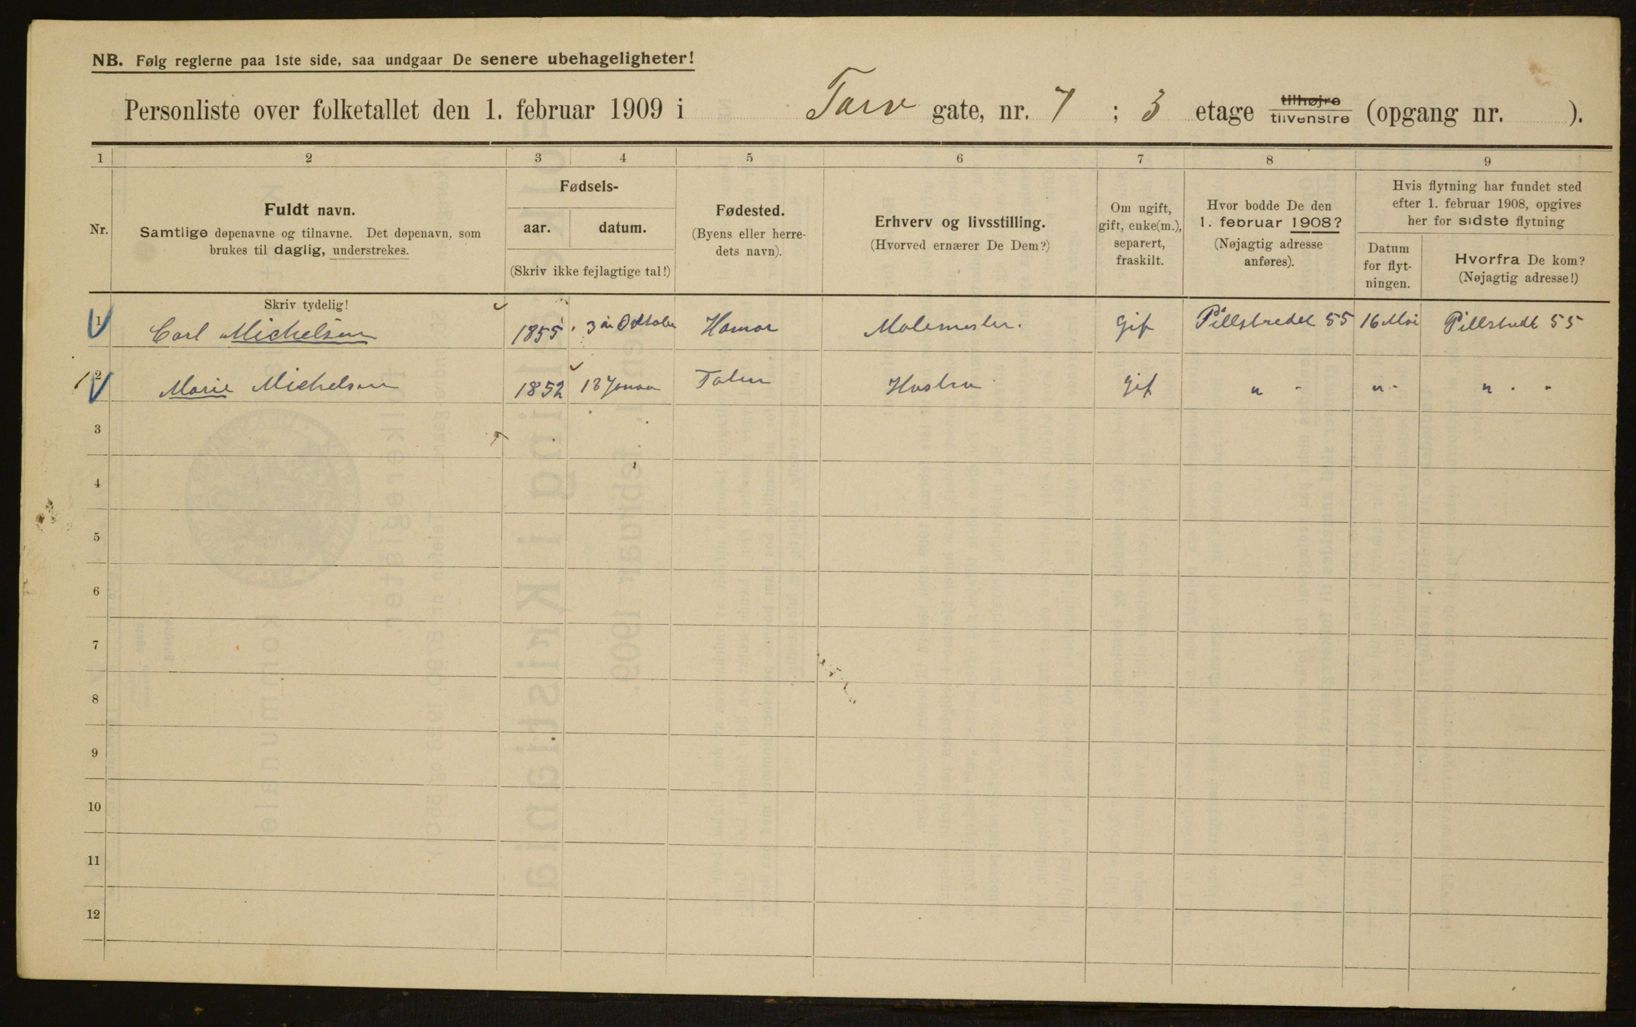 NB. Følg reglerne paa 1ste side, saa undgaar De senere ubehageligheter!
Personliste over folketallet den 1. februar 1909 i Torv gate, nr. 7 ; 3 etage tilhøjre tilvenstre (opgang nr. ).
1 2 3 4 5 6 7 8 9
Nr.
Fuldt navn.
Samtlige døpenavne og tilnavne. Det døpenavn, som
brukes til daglig, understrekes.
Skriv tydelig!
Fødsels-
aar. datum.
(Skriv ikke fejlagtige tal!)
Fødested.
(Byens eller herre-
dets navn).
Erhverv og livsstilling.
(Hvorved ernærer De Dem?)
Om ugift,
gift, enke(m.),
separert,
fraskilt.
Hvor bodde De den
1. februar 1908?
(Nøjagtig adresse
anføres).
Hvis flytning har fundet sted
efter 1. februar 1908, opgives
her for sidste flytning
Datum
for flyt-
ningen.
Hvorfra De kom?
(Nøjagtig adresse!)
1 Carl Michelsen 1855 3 Oktober Hamar Malemester. Gif Pillstredet 55 16 Mai
2 Marie Michelsen 1852 Hustru Gif " " " " " "
3
4
5
6
7
8
9
10
11
12